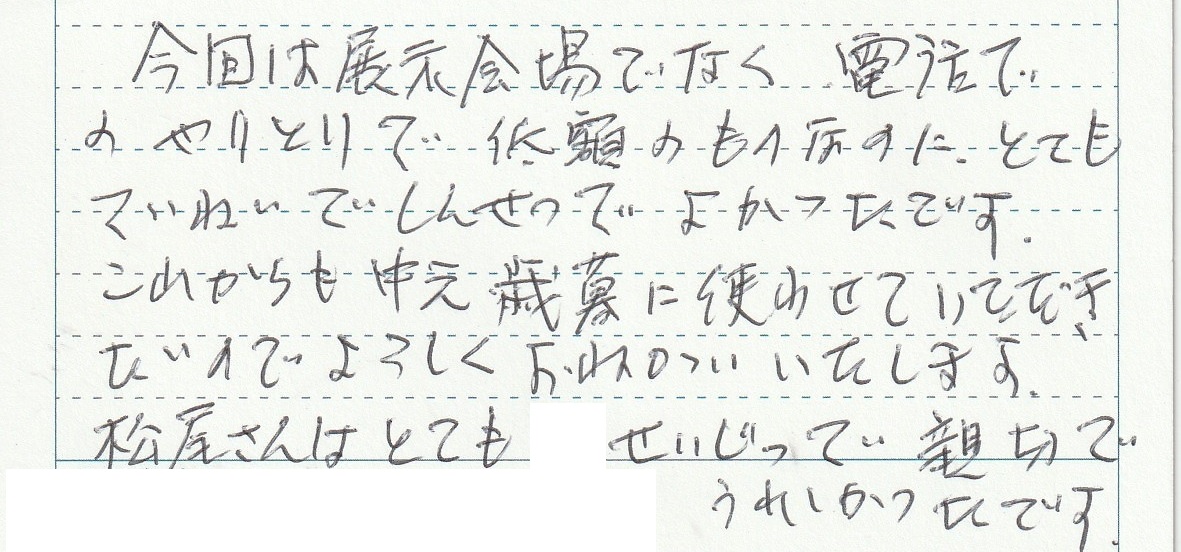 今回は展示会場でなく電話で
のやりとりで低額のものなのに、とても
ていねいでしんせつでよかったです。
これからも中元歳暮に使わせていただき
たいのでよろしくおねがいいたします。
松尾さんはとても せいじつで親切で
うれしかったです。